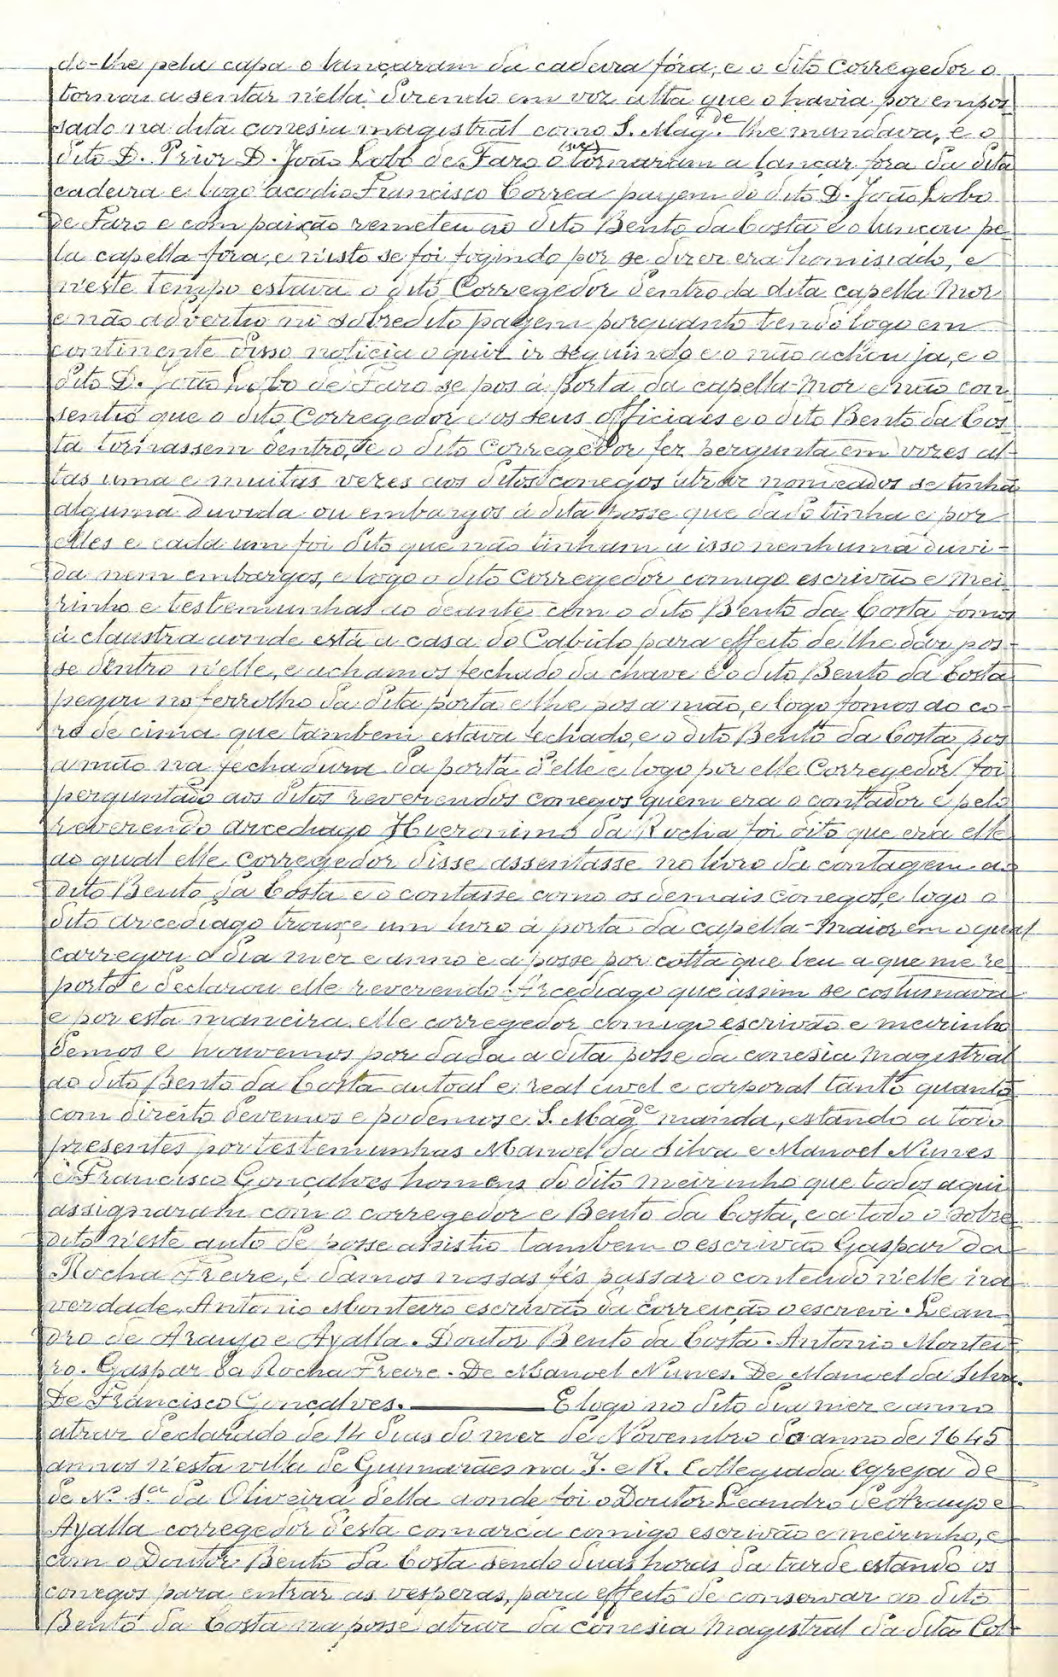 do-lhe pela capa o lançaram da cadeira fóra, e o dito Corregedor o
tornou a sentar n'ella dizendo em voz alta que o havia por empos-
sado na dita conesia magistral como S. Mag.de lhe mandava, e o
dito D. Prior D. João Lobo de Faro o tornaram a lançar fora da dita
cadeira e logo acodio Francisco Correa pagem do dito D. João Lobo
de Faro e com paixão remeteu ao dito Bento da Costa e o lançou pe-
la capella fora, e n'isto se foi fogindo por se dizer era homisiado, e
n'este tempo estava o dito Corregedor dentro da dita capella Mor
e não advertio no sobredito pagem porquanto tendo logo em
continente disso noticia o quiz ir seguindo e o não achou ja, e o
dito D. João Lobo de Faro se pos á porta da capella-mor e não con-
sentio que o dito Corregedor e os seus officiaes e o dito Bento da Cos-
ta tornassem dentro, e o dito Corregedor fez pergunta em vozes al-
tas uma e muitas vezes aos ditos conegos atraz nomeados se tinha
alguma duvida ou embargos á dita posse que dado tinha e por
elles e cada um foi dito que não tinham a isso nenhuma duvi-
da nem embargos, e logo o dito Corregedor comigo escrivão e mei-
rinho e testemunhas ao deante com o dito Bento da Costa fomos
á claustra aonde está a casa do Cabido para effeito de lhe dár pos-
se dentro n'elle, e achamos fechado da chave e o dito Bento da Costa
pegou no ferrolho da dita porta e lhe pos a mão, e logo fomos ao co-
ro de cima que tambem estava fechado, e o dito Bento da Costa pos
a mão na fechadura da porta d'elle e logo por elle Corregedor foi
perguntado aos ditos reverendos conegos quem era o contador e pelo
reverendo arcediago Hieronimo da Rocha foi dito que era elle
ao qual elle Corregedor disse assentasse no livro da contagem ao
dito Bento da Costa e o contasse como os demais conegos, e logo o
dito arcediago trouxe um livro á porta da capella-maior em o qual
carregou o dia mez e anno e a posse por cotta que leu a que me re-
porto e declarou elle reverendo Arcediago que assim se costumava
e por esta maneira elle corregedor comigo escrivão e meirinho
demos e houvemos por dada a dita posse da conesia magistral
ao dito Bento da Costa autoal e real civel e corporal tanto quanto
com direito devemos e podemos e S. Mag.de manda, estando a todo
presentes por testemunhas Manoel da Silva e Manoel Nunes
e Francisco Gonçalves homens do dito meirinho que todos aqui
assignaram com o corregedor e Bento da Costa, e a todo o sobre-
dito n'este auto de posse assistio tambem o escrivão Gaspar da
Rocha Freire, e damos nossas fés passar o conteudo n'elle na
verdade. Antonio Monteiro escrivão da correição o escrevi. Lean-
dro de Araujo e Ayalla. Doutor Bento da Costa. Antonio Montei-
ro. Gaspar da Rocha Freire. De Manoel Nunes. De Manoel da Silva.
De Francisco Gonçalves. ——— E logo no dito dia mez e anno
atraz declarado de 14 dias do mez de Novembro do anno de 1645
annos n'esta villa de Guimarães na I. e R. Collegiada Egreja de
de N.ª S.ra da Oliveira della aonde foi o Doutor Leandro de Araujo e
Ayalla corregedor d'esta comarca comigo escrivão e meirinho, e
com o Doutor Bento da Costa sendo duas horas da tarde estando os
conegos para entrar as vesperas, para effeito de conservar ao dito
Bento da Costa na posse atraz da conesia Magistral da dita Col-